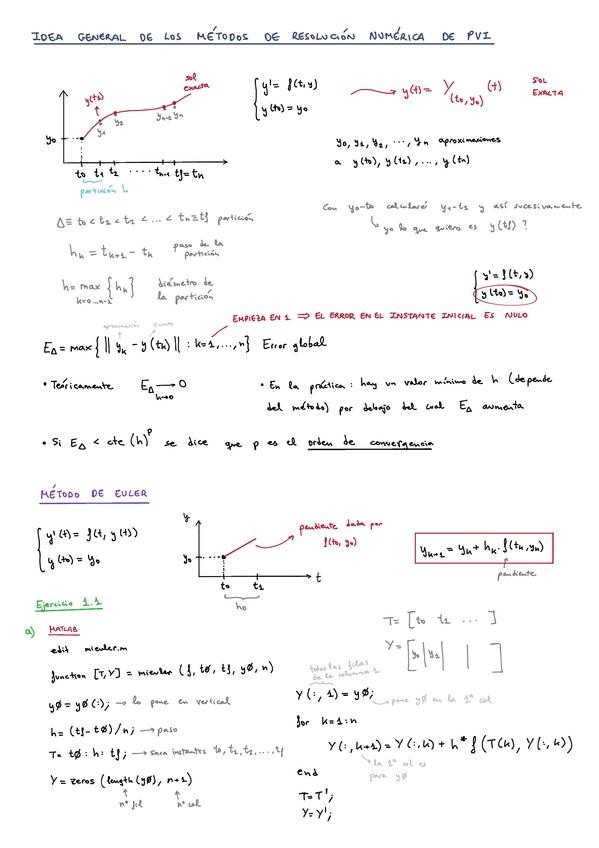 IDEA GENERAL DE LOS MÉTODOS DE RESOLUCIÓN NUMÉRICA DE PVI
sol
exacta
y(t1)
y0
y1
y2
yn-1 yn
t0 t1 t2 ..... tn-1 tf=tn
partición h
{ y' = f(t,y)
y(t0) = y0
y(t) = Y(t0,y0) (t)
SOL
EXACTA
y0, y1, y2, ..., yn aproximaciones
a y(t0), y(t1), ..., y(tn)
Con y0-t0 calcularé y1-t1 y así sucesivamente
yo lo que quiero es y(tf) ?
Δ ≡ t0 < t1 < t2 < ... < tn ≡ tf partición
hk = tk+1 - tk paso de la
partición
h = max {hk} diámetro de
k=0...n-1 la partición
{ y' = f(t,y)
y(t0) = y0
EMPIEZA EN 1 ⇒ EL ERROR EN EL INSTANTE INICIAL ES NULO
aproximación exacta
EΔ = max{ || yk - y(tk) || : k=1,...,n} Error global
• Teóricamente EΔ → 0
h→0
• En la práctica: hay un valor mínimo de h (depende
del método) por debajo del cual EΔ aumenta
• Si EΔ < cte (h)^p se dice que p es el orden de convergencia
MÉTODO DE EULER
{ y'(t) = f(t, y(t))
y(t0) = y0
y
y0
t0 t1
t
h0
pendiente dada por
f(t0, y0)
yk+1 = yk + hk · f(tk, yk)
pendiente
Ejercicio 1.1
a) MATLAB
edit mieuler.m
function [T,Y] = mieuler (f, t0, tf, y0, n)
y0 = y0(:); → lo pone en vertical
h = (tf-t0)/n; → paso
T = t0:h:tf; → saca instantes t0, t1, t2, ..., tf
Y = zeros (length(y0), n+1)
nº fil nº col
T = [t0 t1 ... ]
Y = [y0 | y1 | | ]
todas las filas
de la columna 1
Y(:,1) = y0; → pone y0 en la 1ª col
for k=1:n
Y(:,k+1) = Y(:,k) + h*f(T(k), Y(:,k))
la 1ª col es
para y0
end
T=T';
Y=Y';